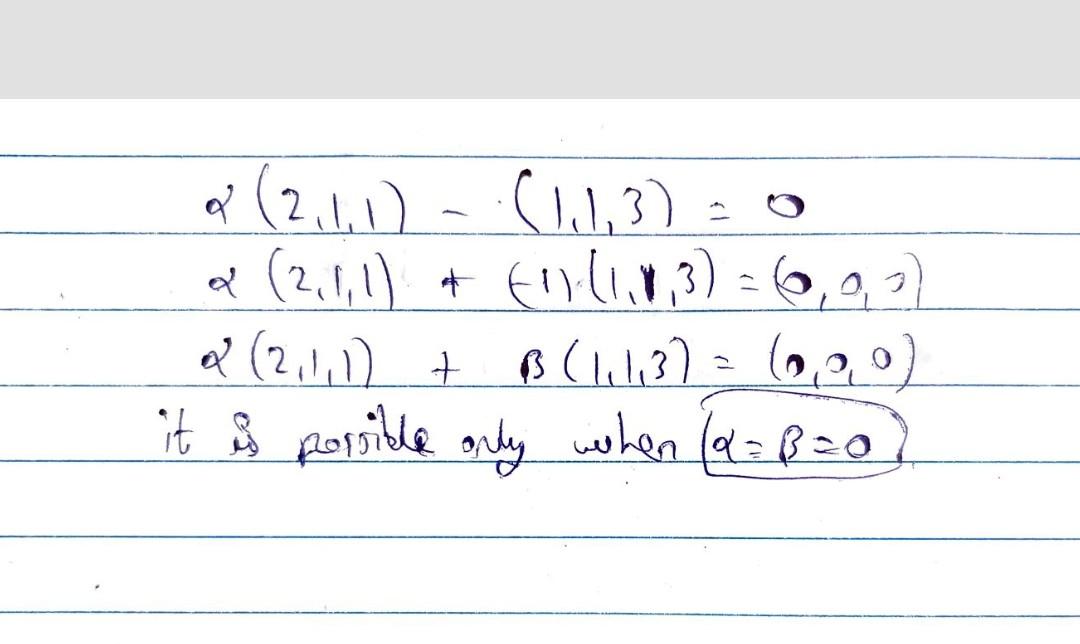 α (2,1,1) - (1,1,3) = 0
α (2,1,1) + (-1).(1,1,3) = (0,0,0)
α (2,1,1) + β (1,1,3) = (0,0,0)
it is possible only when (α = β = 0)